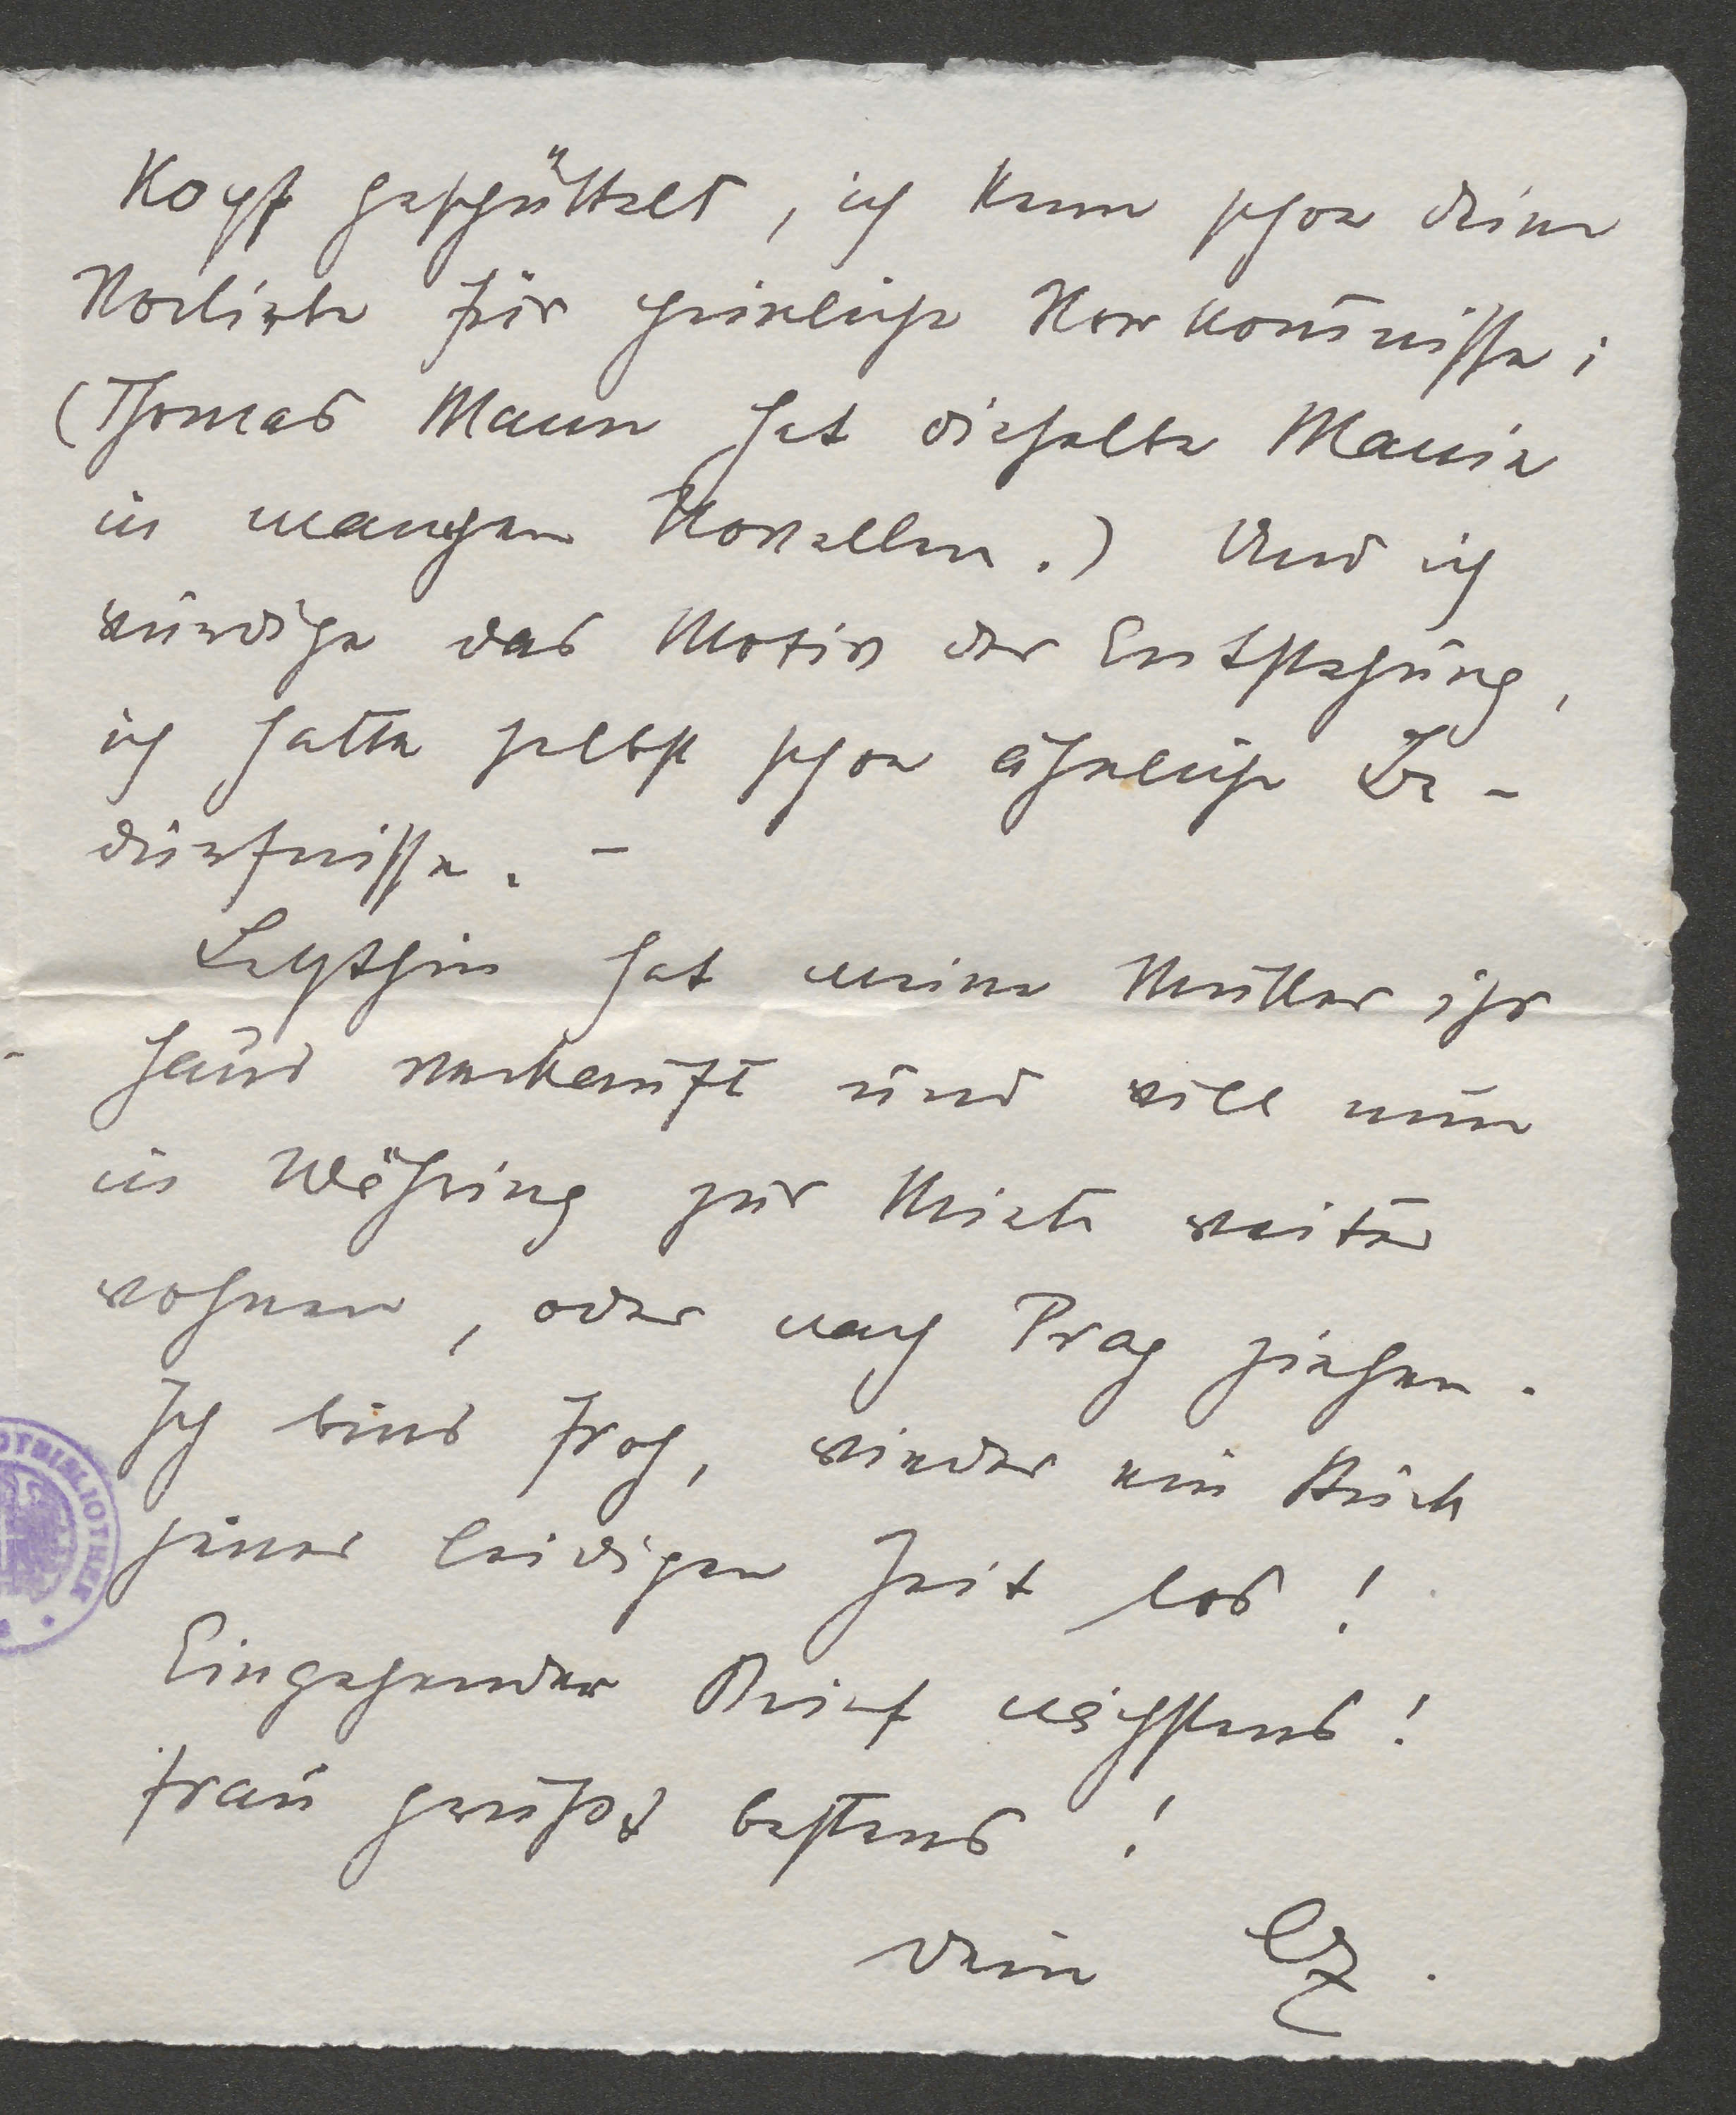 Kopf geschüttelt, ich kenne schon deine
Vorliebe für peinliche Vorkomnisse;
(Thomas Mann hat dieselbe Manie
in manchen Novellen.) Und ich
würdige das Motiv der Entsagung,
ich hatte selbst schon ähnliche Be-
dürfnisse. –
Letzthin hat meine Mutter ihr
Haus verkauft und will nun
in Währing zur Miete weiter
wohnen, oder nach Prag ziehen.
Ich bins froh, wieder ein Stück
jener leidigen Zeit los!
Eingehender Brief nächstens!
Frau grüßt bestens!
dein